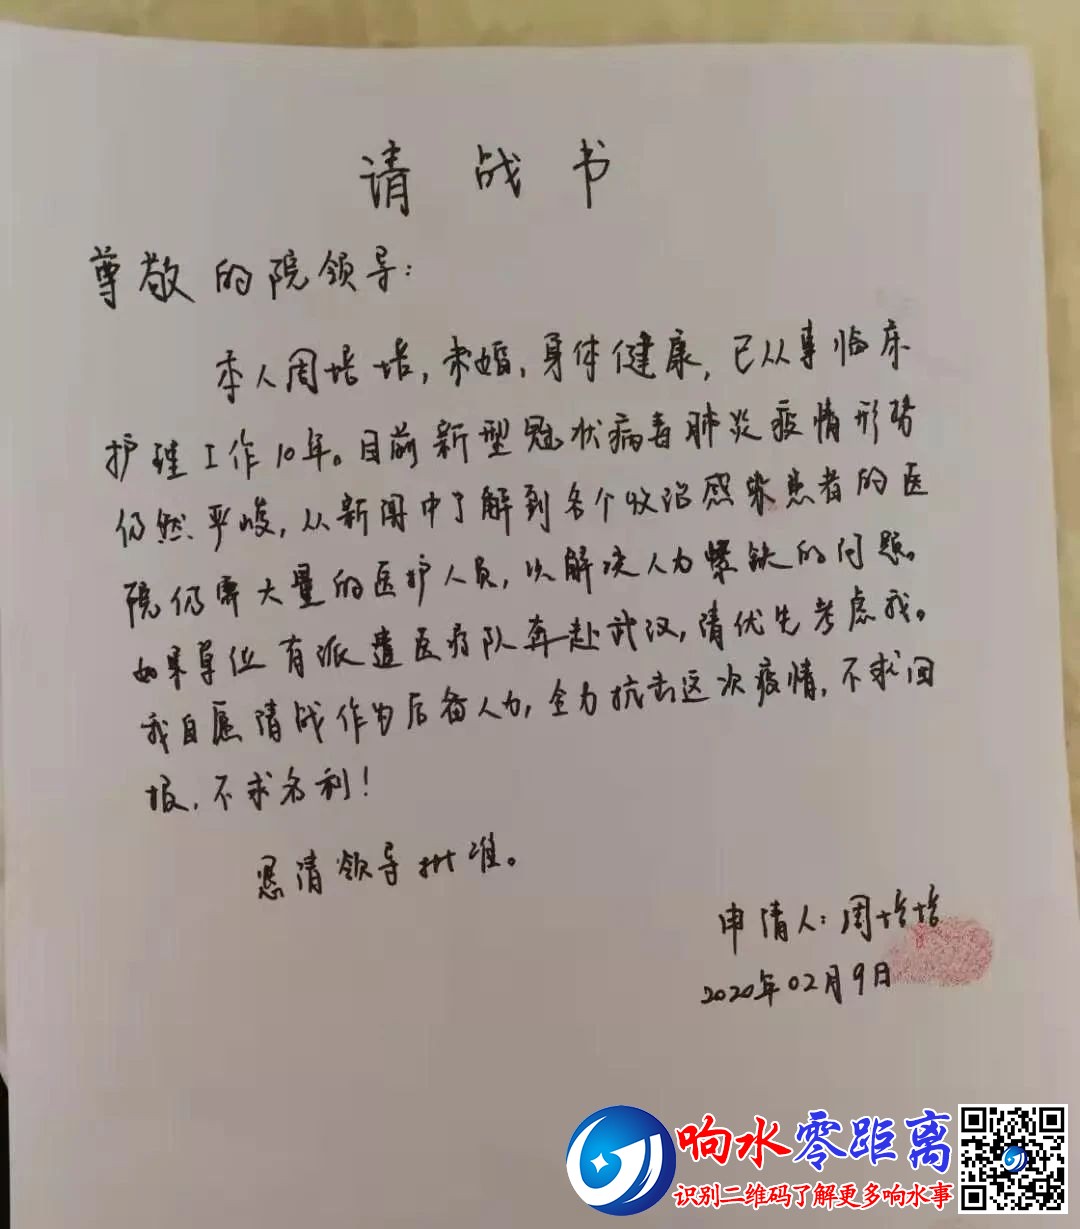 请战书
尊敬的院领导：
本人周培培，未婚，身体健康，已从事临床
护理工作10年。目前新型冠状病毒肺炎疫情形势
仍然严峻，从新闻中了解到各个收治感染患者的医
院仍需大量的医护人员，以解决人力紧缺的问题。
如果单位有派遣医疗队奔赴武汉，请优先考虑我。
我自愿请战作为后备人力，全力抗击这次疫情，不求回
报，不求名利！
恳请领导批准。
申请人：周培培
2020年02月9日
响水零距离
识别二维码了解更多响水事